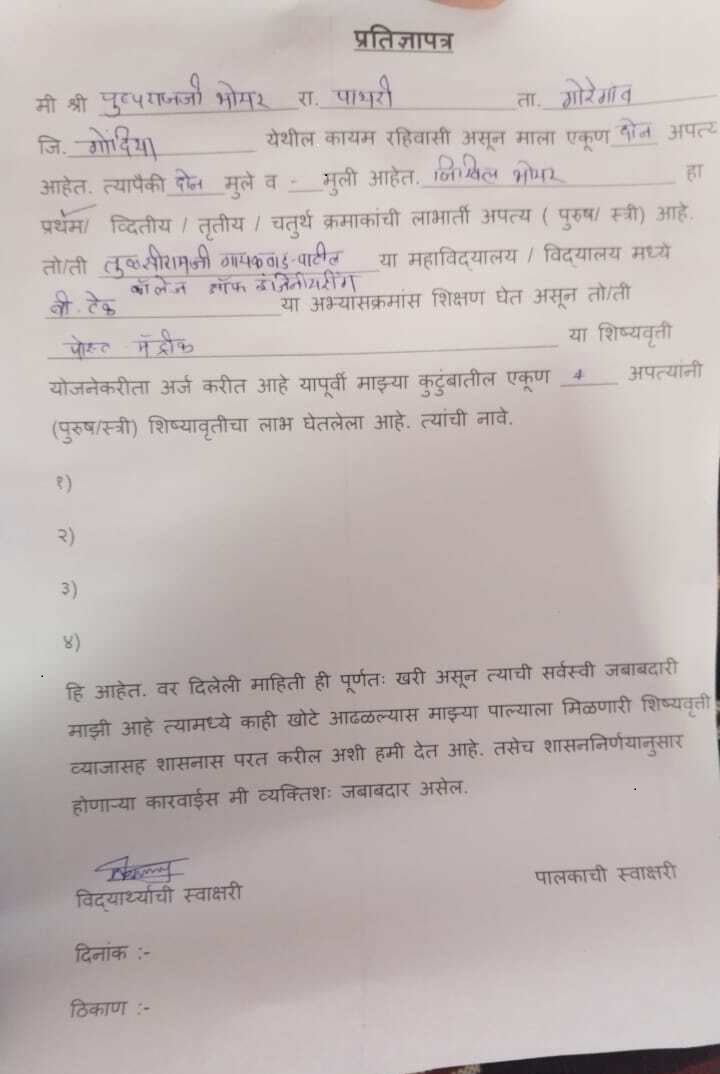 प्रतिज्ञापत्र
मी श्री पुष्पराजजी भोयर रा. पाथरी ता. गोरेगांव
जि. गोंदिया येथील कायम रहिवासी असून माला एकूण दोन अपत्य
आहेत. त्यापैकी दोन मुले व - मुली आहेत. निखिल भोयर हा
प्रथम/ व्दितीय / तृतीय / चतुर्थ क्रमाकांची लाभार्ती अपत्य ( पुरुष/ स्त्री) आहे.
तो/ती तुळसीरामजी गायकवाड-पाटील या महाविद्यालय / विद्यालय मध्ये
कॉलेज ऑफ इंजिनीयरींग
बी. टेक या अभ्यासक्रमांस शिक्षण घेत असून तो/ती
पोस्ट मॅट्रीक या शिष्यवृती
योजनेकरीता अर्ज करीत आहे यापूर्वी माझ्या कुटुंबातील एकूण अपत्यांनी
(पुरुष/स्त्री) शिष्यावृतीचा लाभ घेतलेला आहे. त्यांची नावे.
१)
२)
३)
४)
हि आहेत. वर दिलेली माहिती ही पूर्णतः खरी असून त्याची सर्वस्वी जबाबदारी
माझी आहे त्यामध्ये काही खोटे आढळल्यास माझ्या पाल्याला मिळणारी शिष्यवृत्ती
व्याजासह शासनास परत करील अशी हमी देत आहे. तसेच शासननिर्णयानुसार
होणाऱ्या कारवाईस मी व्यक्तिशः जबाबदार असेल.
विद्यार्थ्याची स्वाक्षरी पालकाची स्वाक्षरी
दिनांक :-
ठिकाण :-